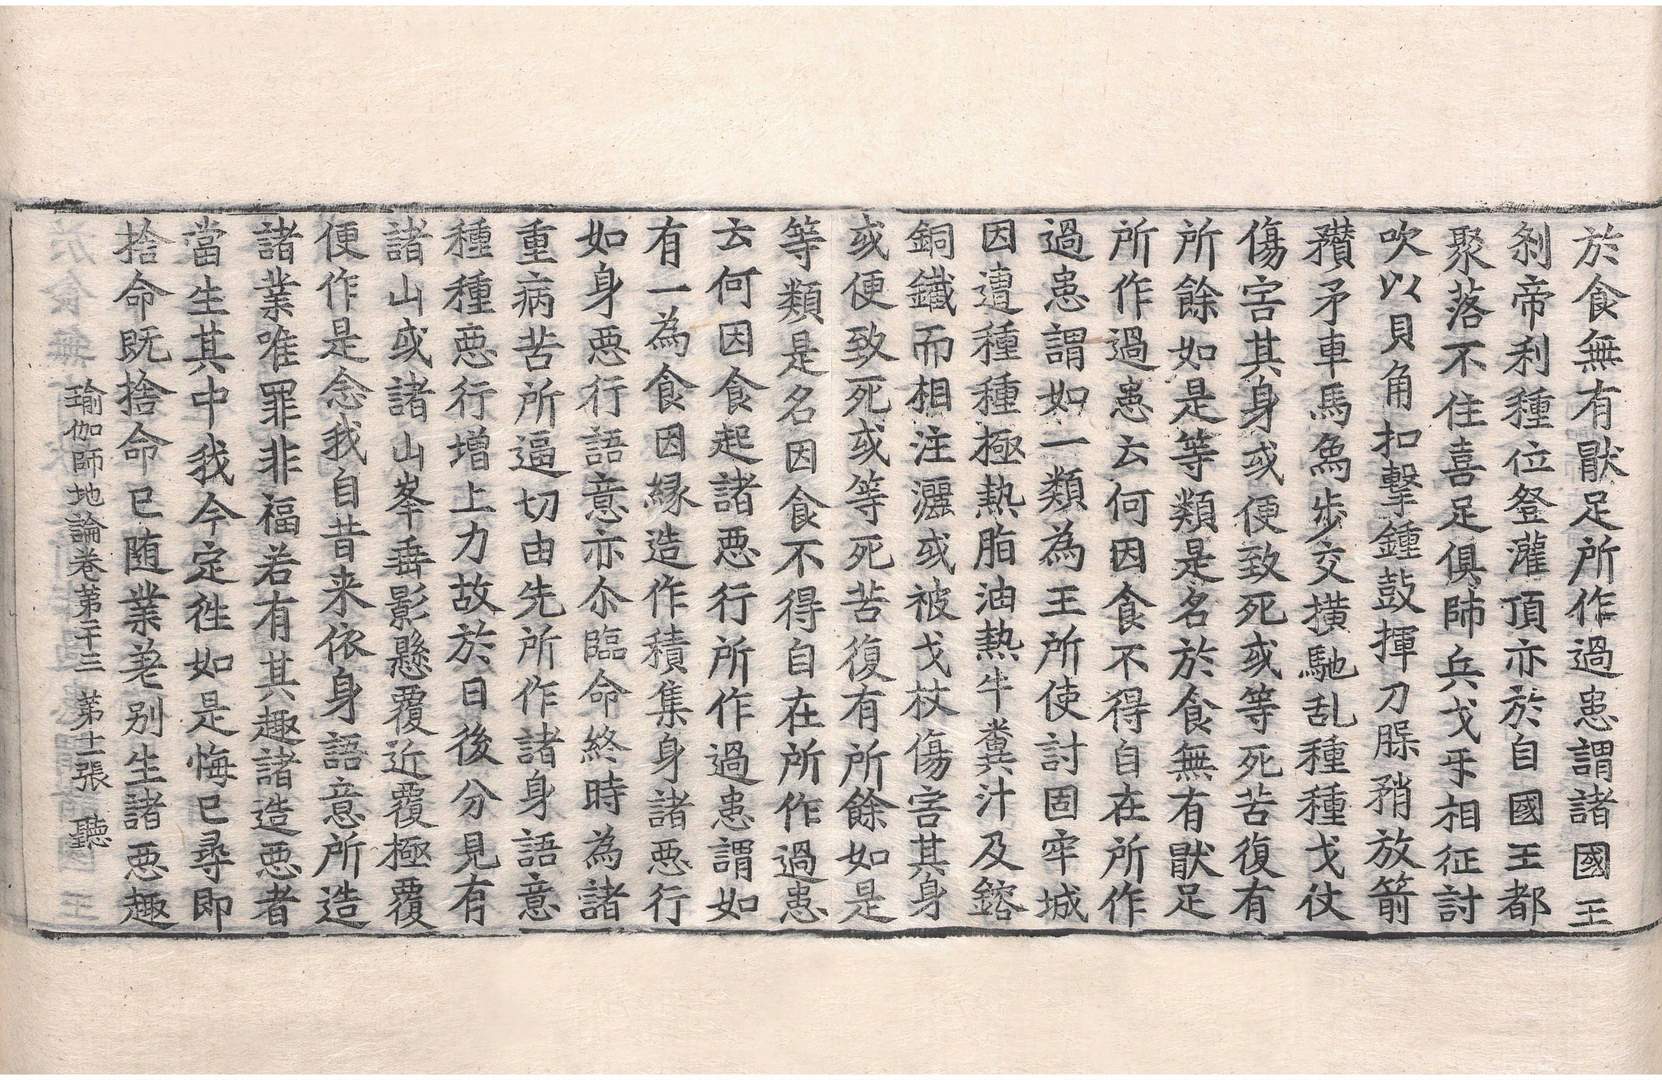 於食無有猒足所作過患謂諸國王
剎帝利種位登灌頂亦於自國王都
聚落不住喜足俱師兵戈㸦相征討
吹以貝角扣擊鍾鼓揮刀䂎矟放箭
穳矛車馬象步交橫馳乱種種戈仗
傷害其身或便致死或等死苦復有
所餘如是等類是名於食無有猒足
所作過患云何因食不得自在所作
過患謂如一類為王所使討固牢城
因遭種種極熱脂油熱牛糞汁及鎔
銅鐵而相注灑或被戈杖傷害其身
或便致死或等死苦復有所餘如是
等類是名因食不得自在所作過患
云何因食起諸惡行所作過患謂如
有一為食因緣造作積集身諸惡行
如身惡行語意亦尒臨命終時為諸
重病苦所逼切由先所作諸身語意
種種惡行增上力故於日後分見有
諸山或諸山峯垂影懸覆近覆極覆
便作是念我自昔来依身語意所造
諸業唯罪非福若有其趣諸造惡者
當生其中我今定往如是悔已尋即
捨命既捨命已随業差别生諸惡趣
瑜伽師地論卷第二十三 第十二張 聽